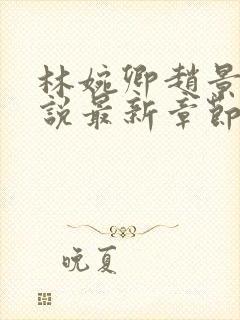 林婉卿趙景
說最新章節
晚夏